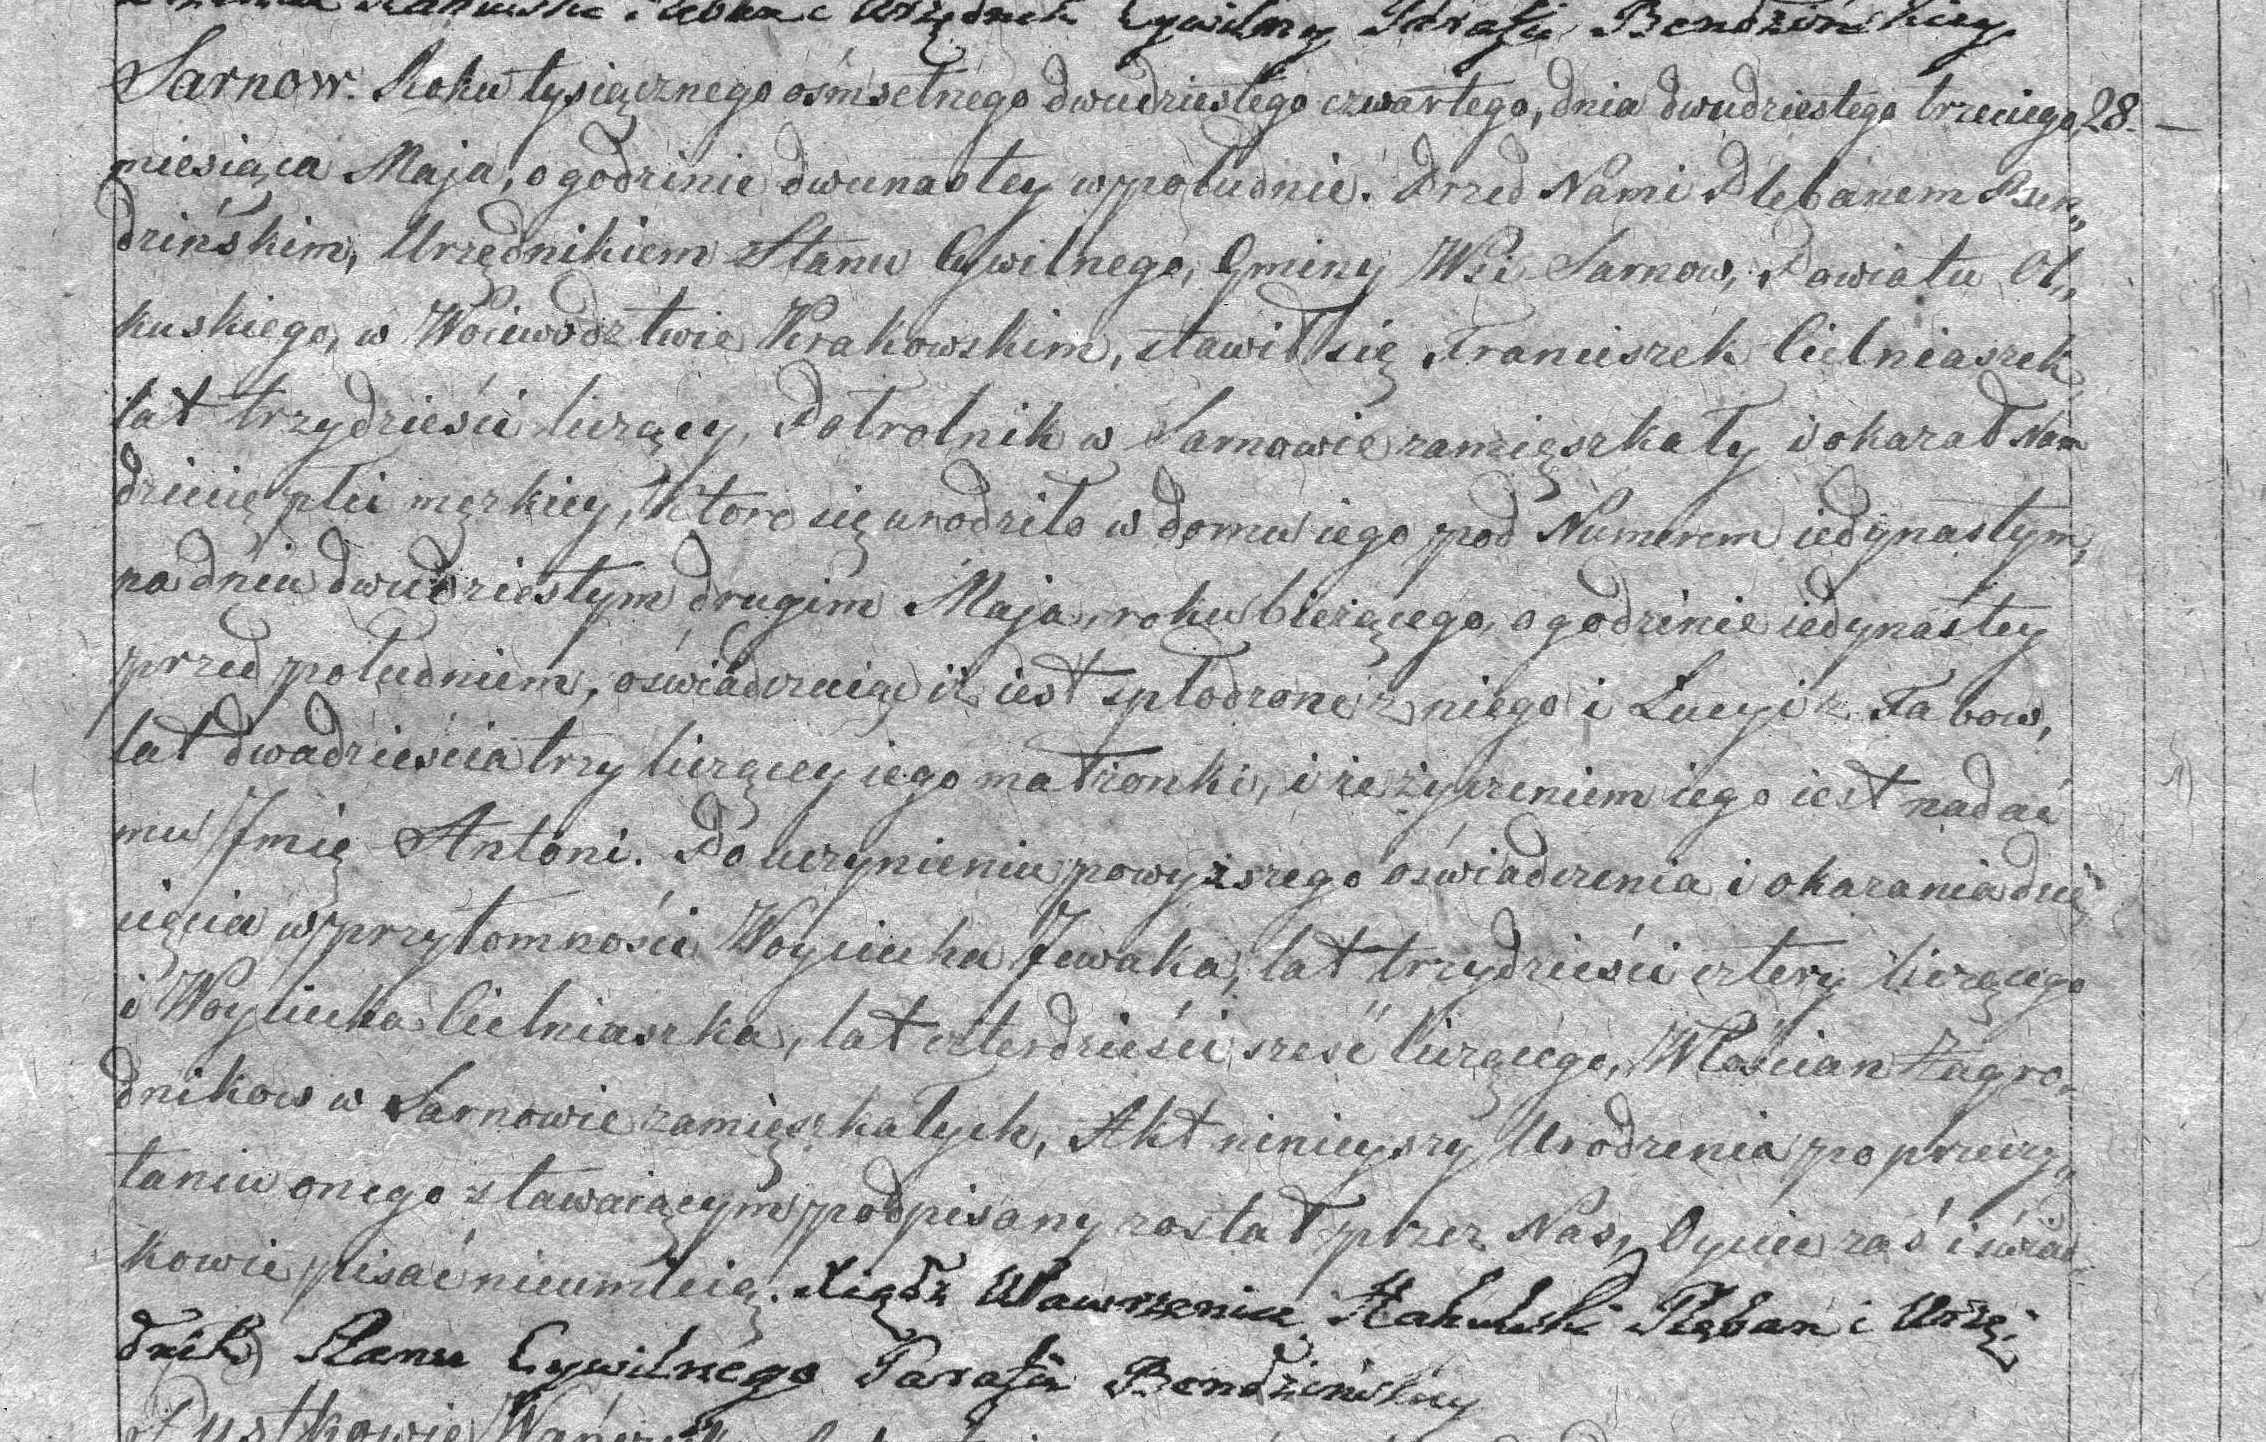 Urzędnik Cywilny Parafii Bendzinskiey
Sarnow. Roku tysiącznego ośmsetnego dwudziestego czwartego, dnia dwudziestego trzeciego 28. —
miesiąca Maja, o godzinie dwunastey w południe. Przed Nami Plebanem Ben„
dzińskim, Urzędnikiem Stanu Cywilnego, Gminy Wsi Sarnow, Powiatu Ol„
kuskiego, w Woiewodztwie Krakowskim, stawił się Franciszek Cielniaszek
lat trzydzieści liczący, Połrolnik w Sarnowie zamięszkały i okazał Nam
dziecię płci męzkiey, ktore się urodziło w domu iego pod Numerem iedynastym,
na dniu dwudziestym drugim Maja, roku bieżącego, o godzinie iedynastey
przed południem, oświadczaiąc iż iest spłodzone z niego i Łucyi z Fabow,
lat dwadzieścia trzy liczącey iego małżonki, i że życzeniem iego iest nadać
mu Jmię Antoni. Po uczynieniu powyższego oświadczenia i okazania dzie„
cięcia w przytomności Woyciecha Jewaka, lat trzydzieści cztery liczącego
i Woyciecha Cielniaszka, lat czterdzieści sześć liczącego, Włościan Zagro„
dnikow w Sarnowie zamięszkałych, Akt ninieyszy Urodzenia po przeczy„
taniu onego stawaiącym podpisany został przez Nas, Oyciec zaś i świad„
kowie pisać nieumieią. Xiądz Wawrzeniec Pleban i Urzę„
dnik Stanu Cywilnego Parafii Bendzinskiey
Pustkowie